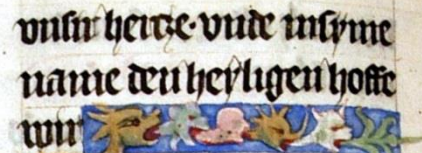 vnsir hertze · vnde in syme
name den heyligen hoffe
wir